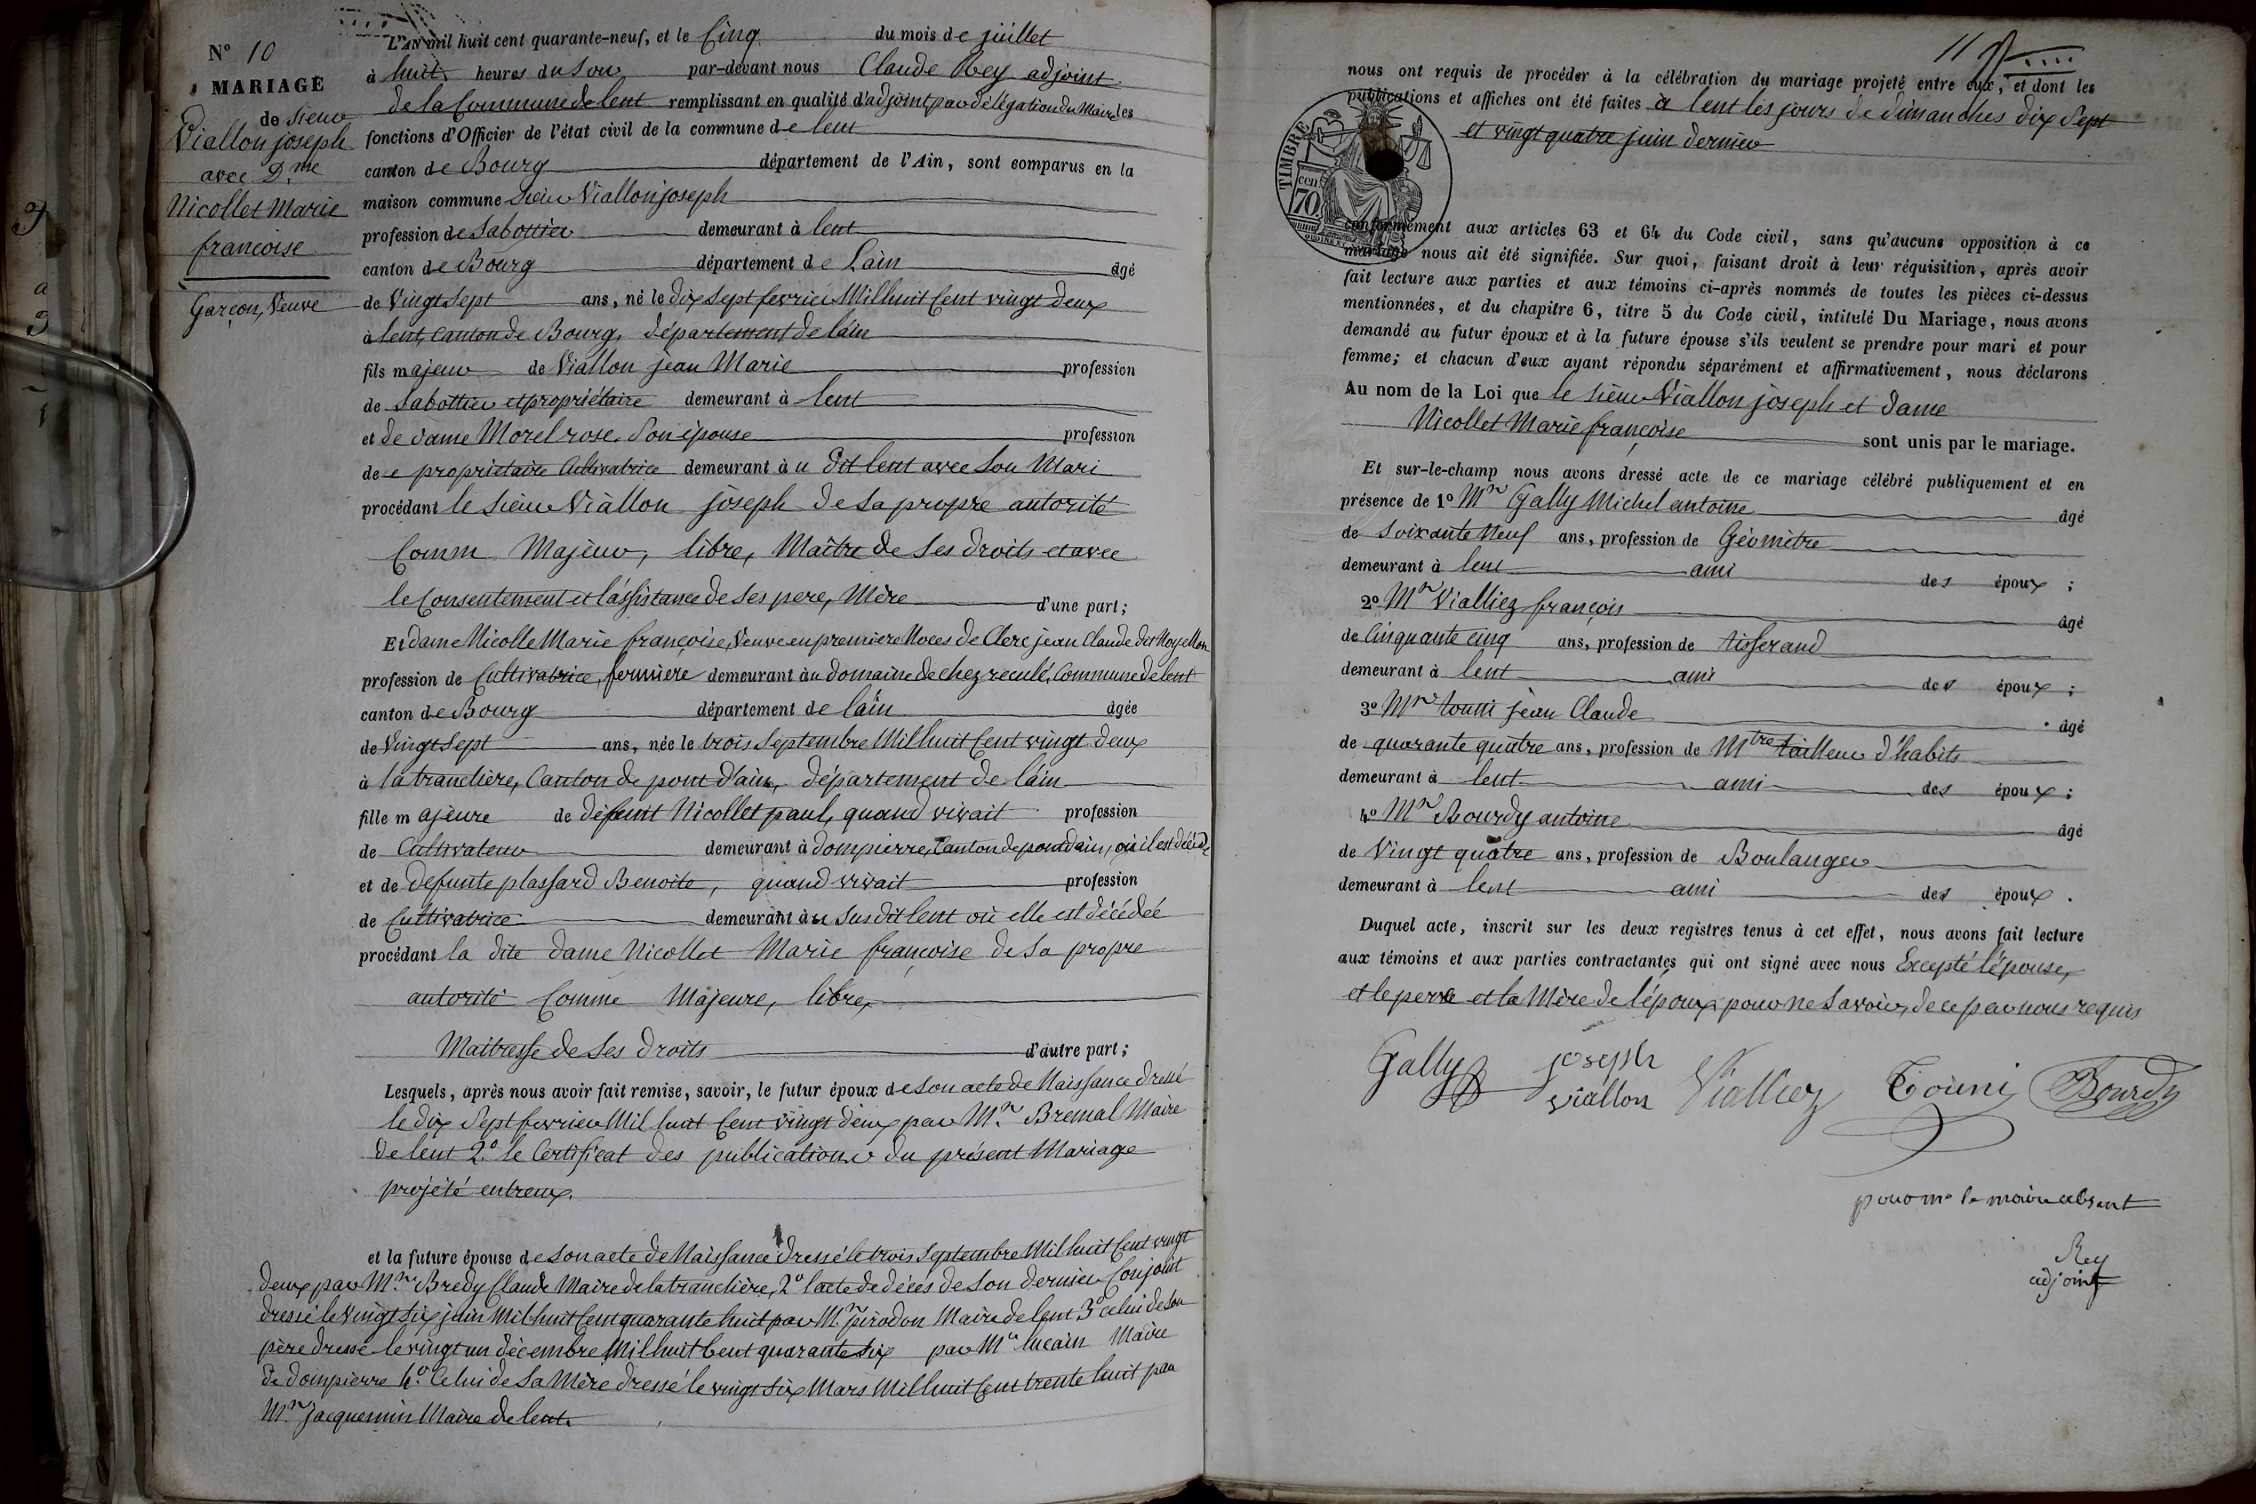 N° 10
MARIAGE
de sieur
Viallon joseph
avec D.me
Nicollet Marie
françoise
Garçon, Veuve
L'AN mil huit cent quarante-neuf, et le Cinq du mois de juillet
à huit heures du Soir par-devant nous Claude Rey adjoint
de la Commune de lent remplissant en qualité d'adjoint par délégation du Maire les
fonctions d'Officier de l'état civil de la commune de lent
canton de Bourg département de l'Ain, sont comparus en la
maison commune Sieur Viallon joseph
profession de Sabottier demeurant à lent
canton de Bourg département de Lain âgé
de Vingt Sept ans, né le dix Sept fevrier Mil huit Cent vingt deux
à lent, Canton de Bourg, département de lain
fils majeur de Viallon jean Marie profession
de Sabottier et propriétaire demeurant à lent
et de dame Morel rose, Son épouse profession
de e propriétaire Cultivatrice demeurant à u dit lent avec Son Mari
procédant le Sieur Viallon joseph de Sa propre autorité
Comm Majeur, libre, Maître de Ses droits et avec
le Consentement et l'assistance de Ses pere, Mère d'une part;
Et dame Nicolle Marie françoise, Veuve en premiere Noces de Clerc jean Claude
profession de Cultivatrice, fermière demeurant au domaine de chez reculé, Commune de lent
canton de Bourg département de lain âgée
de Vingt Sept ans, née le trois Septembre Mil huit Cent vingt deux
à la tranclière, Canton de pont d'ain, département de lain
fille majeure de défunt Nicollet paul, quand vivait profession
de Cultivateur demeurant à dompierre, Canton de pont d'ain, où il est décédé
et de defunte plassard Benoite, quand vivait profession
de Cultivatrice demeurant au Susdit lent où elle est décédée
procédant la dite dame Nicollet Marie françoise de Sa propre
autorité Comme Majeure, libre,
Maitresse de Ses droits d'autre part;
Lesquels, après nous avoir fait remise, savoir, le futur époux de Son acte de Naissance dressé
le dix Sept fevrier Mil huit Cent vingt deux par M.r Bremal Maire
de lent 2.° le Certificat des publications du présent Mariage
projété entreux.
et la future épouse de Son acte de Naissance dressé le trois Septembre Mil huit Cent vingt
deux par M.r Bredy Claude Maire de la tranclière, 2° l'acte de décès de Son dernier Conjoint
dressé le vingt Six juin Mil huit Cent quarante huit par M.r pirodon Maire de lent 3° celui de Son
père dressé le vingt un décembre Mil huit Cent quarante Six par M.r lucain Maire
de dompierre 4.° Celui de Sa Mère dressé le vingt Six Mars Mil huit Cent trente huit par
M.r Jacquemin Maire de lent.
11
nous ont requis de procéder à la célébration du mariage projeté entre eux, et dont les
publications et affiches ont été faites à lent les jours de dimanches dix Sept
et vingt quatre juin dernier
TIMBRE
70
cent
conformément aux articles 63 et 64 du Code civil, sans qu'aucune opposition à ce
mariage nous ait été signifiée. Sur quoi, faisant droit à leur réquisition, après avoir
fait lecture aux parties et aux témoins ci-après nommés de toutes les pièces ci-dessus
mentionnées, et du chapitre 6, titre 5 du Code civil, intitulé Du Mariage, nous avons
demandé au futur époux et à la future épouse s'ils veulent se prendre pour mari et pour
femme; et chacun d'eux ayant répondu séparément et affirmativement, nous déclarons
Au nom de la Loi que le Sieur Viallon joseph et dame
Nicollet Marie françoise sont unis par le mariage.
Et sur-le-champ nous avons dressé acte de ce mariage célébré publiquement et en
présence de 1° M.r Gally Michel antoine âgé
de Soixante Neuf ans, profession de Géomètre
demeurant à lent ami des époux;
2° M.r Vialliez françois âgé
de Cinquante cinq ans, profession de tisserand
demeurant à lent ami des époux;
3° M.r touni jean Claude âgé
de quarante quatre ans, profession de M.tre tailleur d'habits
demeurant à lent ami des époux;
4° M.r Bourdy antoine âgé
de Vingt quatre ans, profession de Boulanger
demeurant à lent ami des époux.
Duquel acte, inscrit sur les deux registres tenus à cet effet, nous avons fait lecture
aux témoins et aux parties contractantes qui ont signé avec nous Excepté l'épouse,
et le perre et la Mère de l'époux, pour ne Savoir, de ce par nous requis
Gally joseph viallon Vialliez Touni Bourdy
pour mr le maire absent
Rey
adjoint